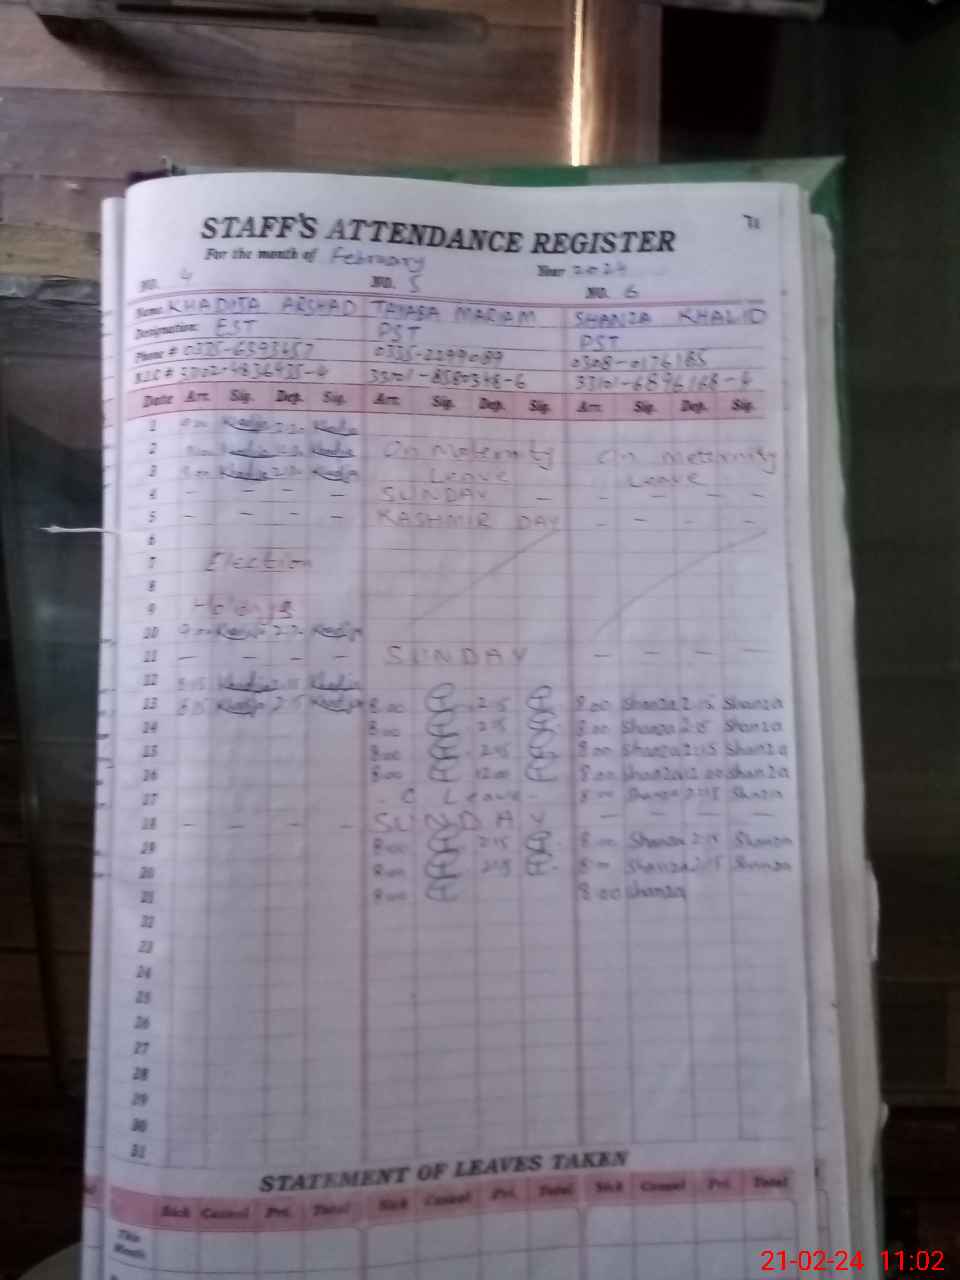 71
STAFF'S ATTENDANCE REGISTER
For the month of February Year 2024
NO. 4 NO. 5 NO. 6
Name KHADIJA ARSHAD TAYABA MARIAM SHANZA KHALID
Designation: EST PST PST
Phone # 0335-2299089 0308-0176185
N.I.C # 33101-8580348-6 33101-6896168-4
Date Arr. Sig. Dep. Sig. Arr. Sig. Dep. Sig. Arr. Sig. Dep. Sig.
1 9.00 Khadija Khadija
2 Khadija Khadija On Maternity On Meternity
3 Khadija Khadija Leave Leave
4 - - - - SUNDAY - - - - -
5 - - - - KASHMIR DAY - - - -
6
7 Election
8
9 Holidays
10 9.00 Khadija Khadija
11 - - - - SUNDAY - - - -
12 8.15 Khadija 2.15 Khadija
13 8.15 Khadija 2.15 Khadija 8.00 2.15 8.00 Shanza 2:15 Shanza
14 8.00 2.15 8.00 Shanza 2:15 Shanza
15 8.00 2.15 8.00 Shanza 2:15 Shanza
16 8.00 12.00 8.00 Shanza 12.00 Shanza
17 - C Leave - 8.00 Shanza 2:15 Shanza
18 - - - - SUNDAY - - - -
19 8.00 2.15 8.00 Shanza 2:15 Shanza
20 8.00 2.15 8.00 Shanza 2:15 Shanza
21 8.00 8.00 Shanza
22
23
24
25
26
27
28
29
30
31
STATEMENT OF LEAVES TAKEN
Sick Casual Pri. Total Sick Casual Pri. Total Sick Casual Pri. Total
This
Month
21-02-24 11:02